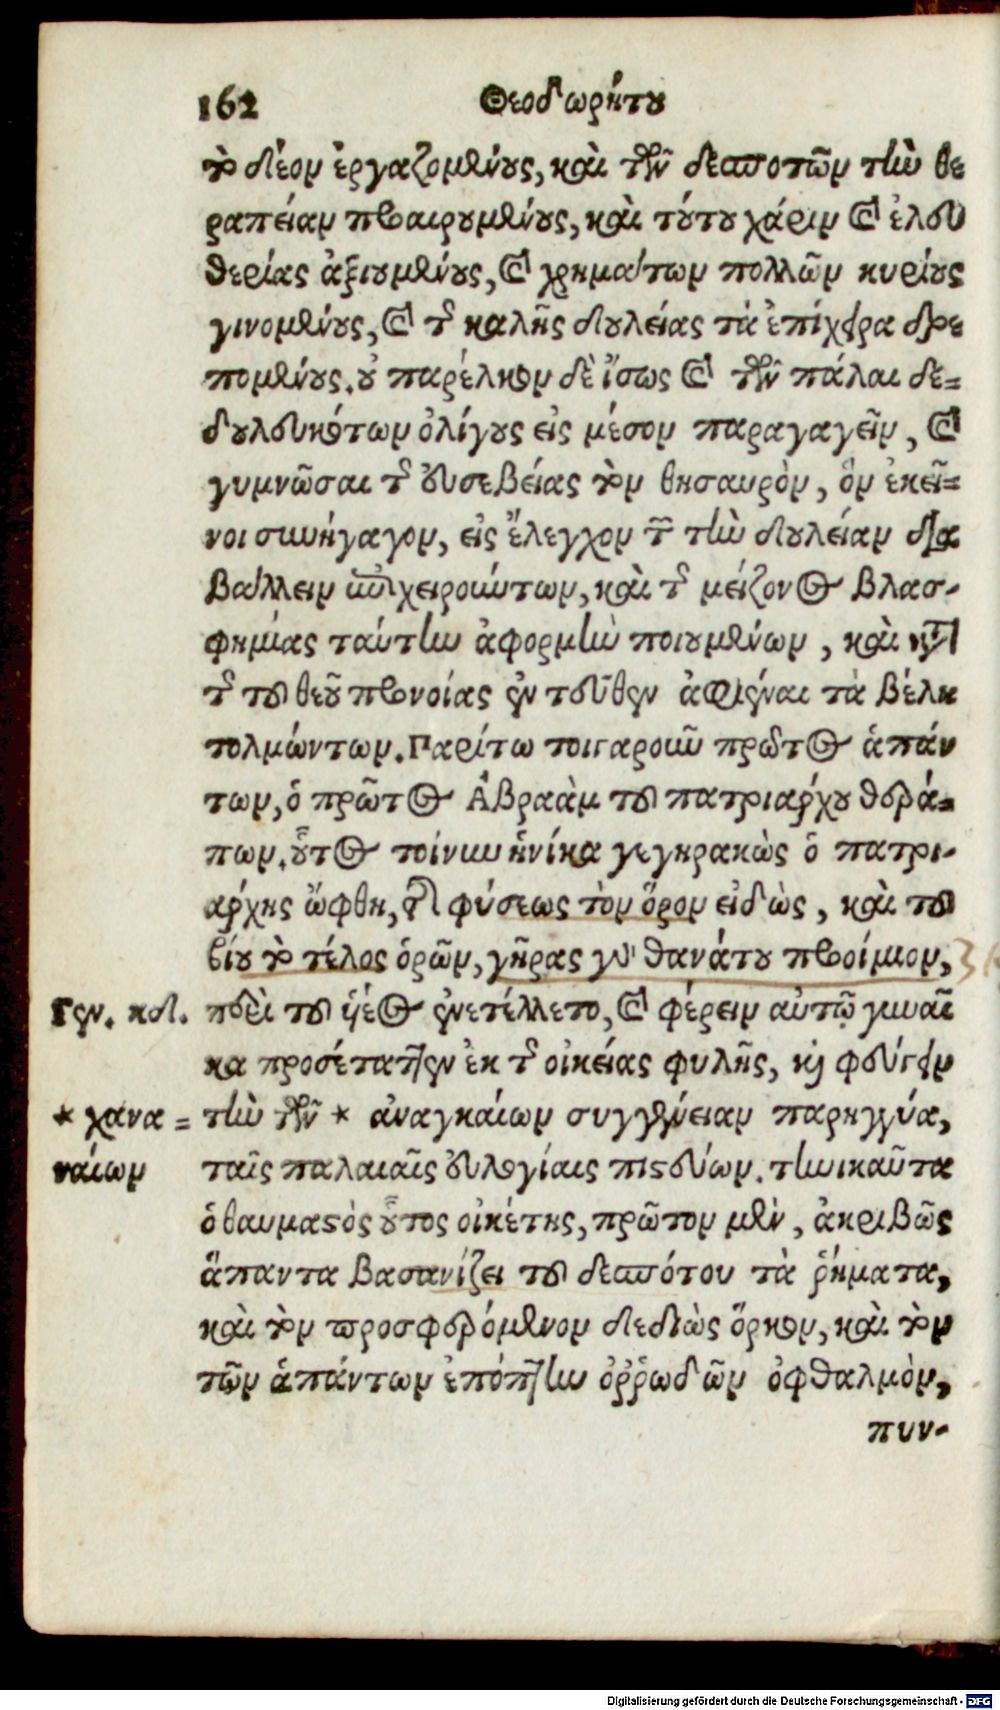 162 Θεοδωρήτου
τὸ δέον ἐργαζομένους, καὶ τῶν δεσποτῶν τὴν θε
ραπείαν προαιρουμένους, καὶ τούτου χάριν καὶ ἐλευ
θερίας ἀξιουμένους, καὶ χρημάτων πολλῶν κυρίους
γινομένους, καὶ τῆς καλῆς δουλείας τὰ ἐπίχειρα δρε
πομένους. οὐ παρέλκον δὲ ἴσως καὶ τῶν πάλαι δε=
δουλευκότων ὀλίγους εἰς μέσον παραγαγεῖν, καὶ
γυμνῶσαι τῆς εὐσεβείας τὸν θησαυρὸν, ὃν ἐκεῖ=
νοι συνήγαγον, εἰς ἔλεγχον τῶν τὴν δουλείαν δια
βάλλειν ἐπιχειρούντων, καὶ τῆς μείζονος βλασ-
φημίας ταύτην ἀφορμὴν ποιουμένων, καὶ κατὰ
τῆς τοῦ θεοῦ προνοίας ἐντεῦθεν ἀφιέναι τὰ βέλη
τολμώντων. Παρίτω τοιγαροῦν πρῶτος ἁπάν
των, ὁ πρῶτος Ἀβραὰμ τοῦ πατριάρχου θερά=
πων. οὗτος τοίνυν ἡνίκα γεγηρακὼς ὁ πατρι-
άρχης ὤφθη, τῆς φύσεως τὸν ὅρον εἰδὼς, καὶ τοῦ
βίου τὸ τέλος ὁρῶν, γῆρας γὰρ θανάτου προοίμιον,
Γεν. κδ. περὶ τοῦ υἱέος ἐνετέλλετο, καὶ φέρειν αὐτῷ γυναῖ
κα προσέταττεν ἐκ τῆς οἰκείας φυλῆς, καὶ φεύγειν
* χανα = τὴν τῶν * ἀναγκαίων συγγένειαν παρηγγύα,
ναίων ταῖς παλαιαῖς εὐλογίαις πιστεύων. τηνικαῦτα
ὁ θαυμαστὸς οὗτος οἰκέτης, πρῶτον μὲν, ἀκριβῶς
ἅπαντα βασανίζει τοῦ δεσπότου τὰ ῥήματα,
καὶ τὸν προσφερόμενον δεδιὼς ὅρκον, καὶ τὸν
τῶν ἁπάντων ἐπόπτην ὀῤῥωδῶν ὀφθαλμὸν,
πυν-
Digitalisierung gefördert durch die Deutsche Forschungsgemeinschaft - DFG